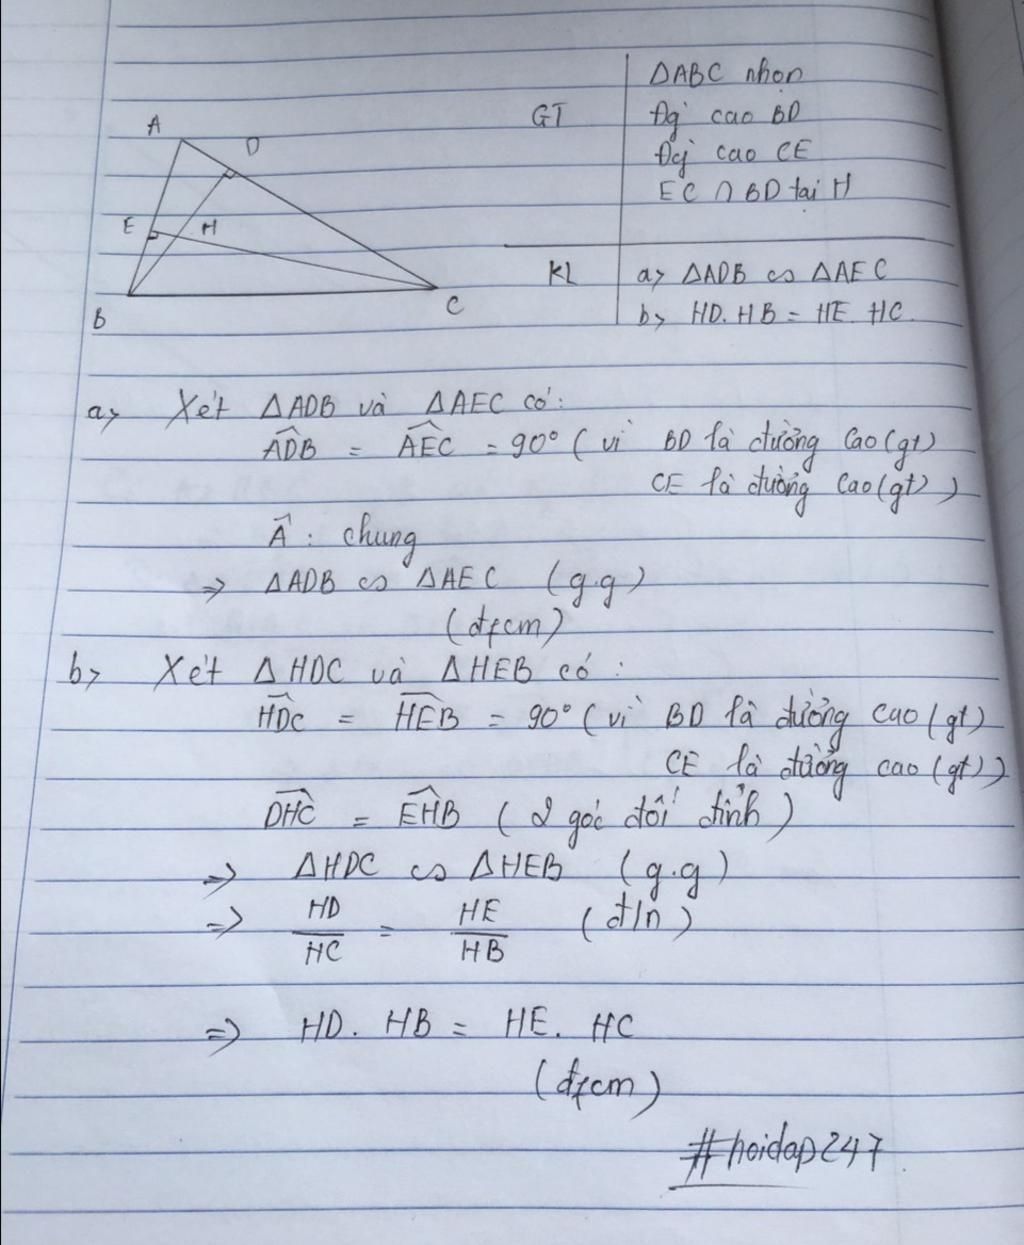 A
D
E
H
B
C
GT
ΔABC nhọn
Đg cao BD
Đg cao CE
EC ∩ BD tại H
KL
a> ΔADB ∽ ΔAEC
b> HD. HB = HE. HC.
a> Xét ΔADB và ΔAEC có:
\widehat{ADB} = \widehat{AEC} = 90° ( vì BD là đường cao (gt)
CE là đường cao (gt) )
\widehat{A} : chung
=> ΔADB ∽ ΔAEC (g.g)
(đfcm)
b> Xét ΔHDC và ΔHEB có :
\widehat{HDC} = \widehat{HEB} = 90° ( vì BD là đường cao (gt)
CE là đường cao (gt) )
\widehat{DHC} = \widehat{EHB} ( 2 góc đối đỉnh )
=> ΔHDC ∽ ΔHEB (g.g)
=> HD/HC = HE/HB (đ/n)
=> HD. HB = HE. HC
(đfcm)
#hoidap247